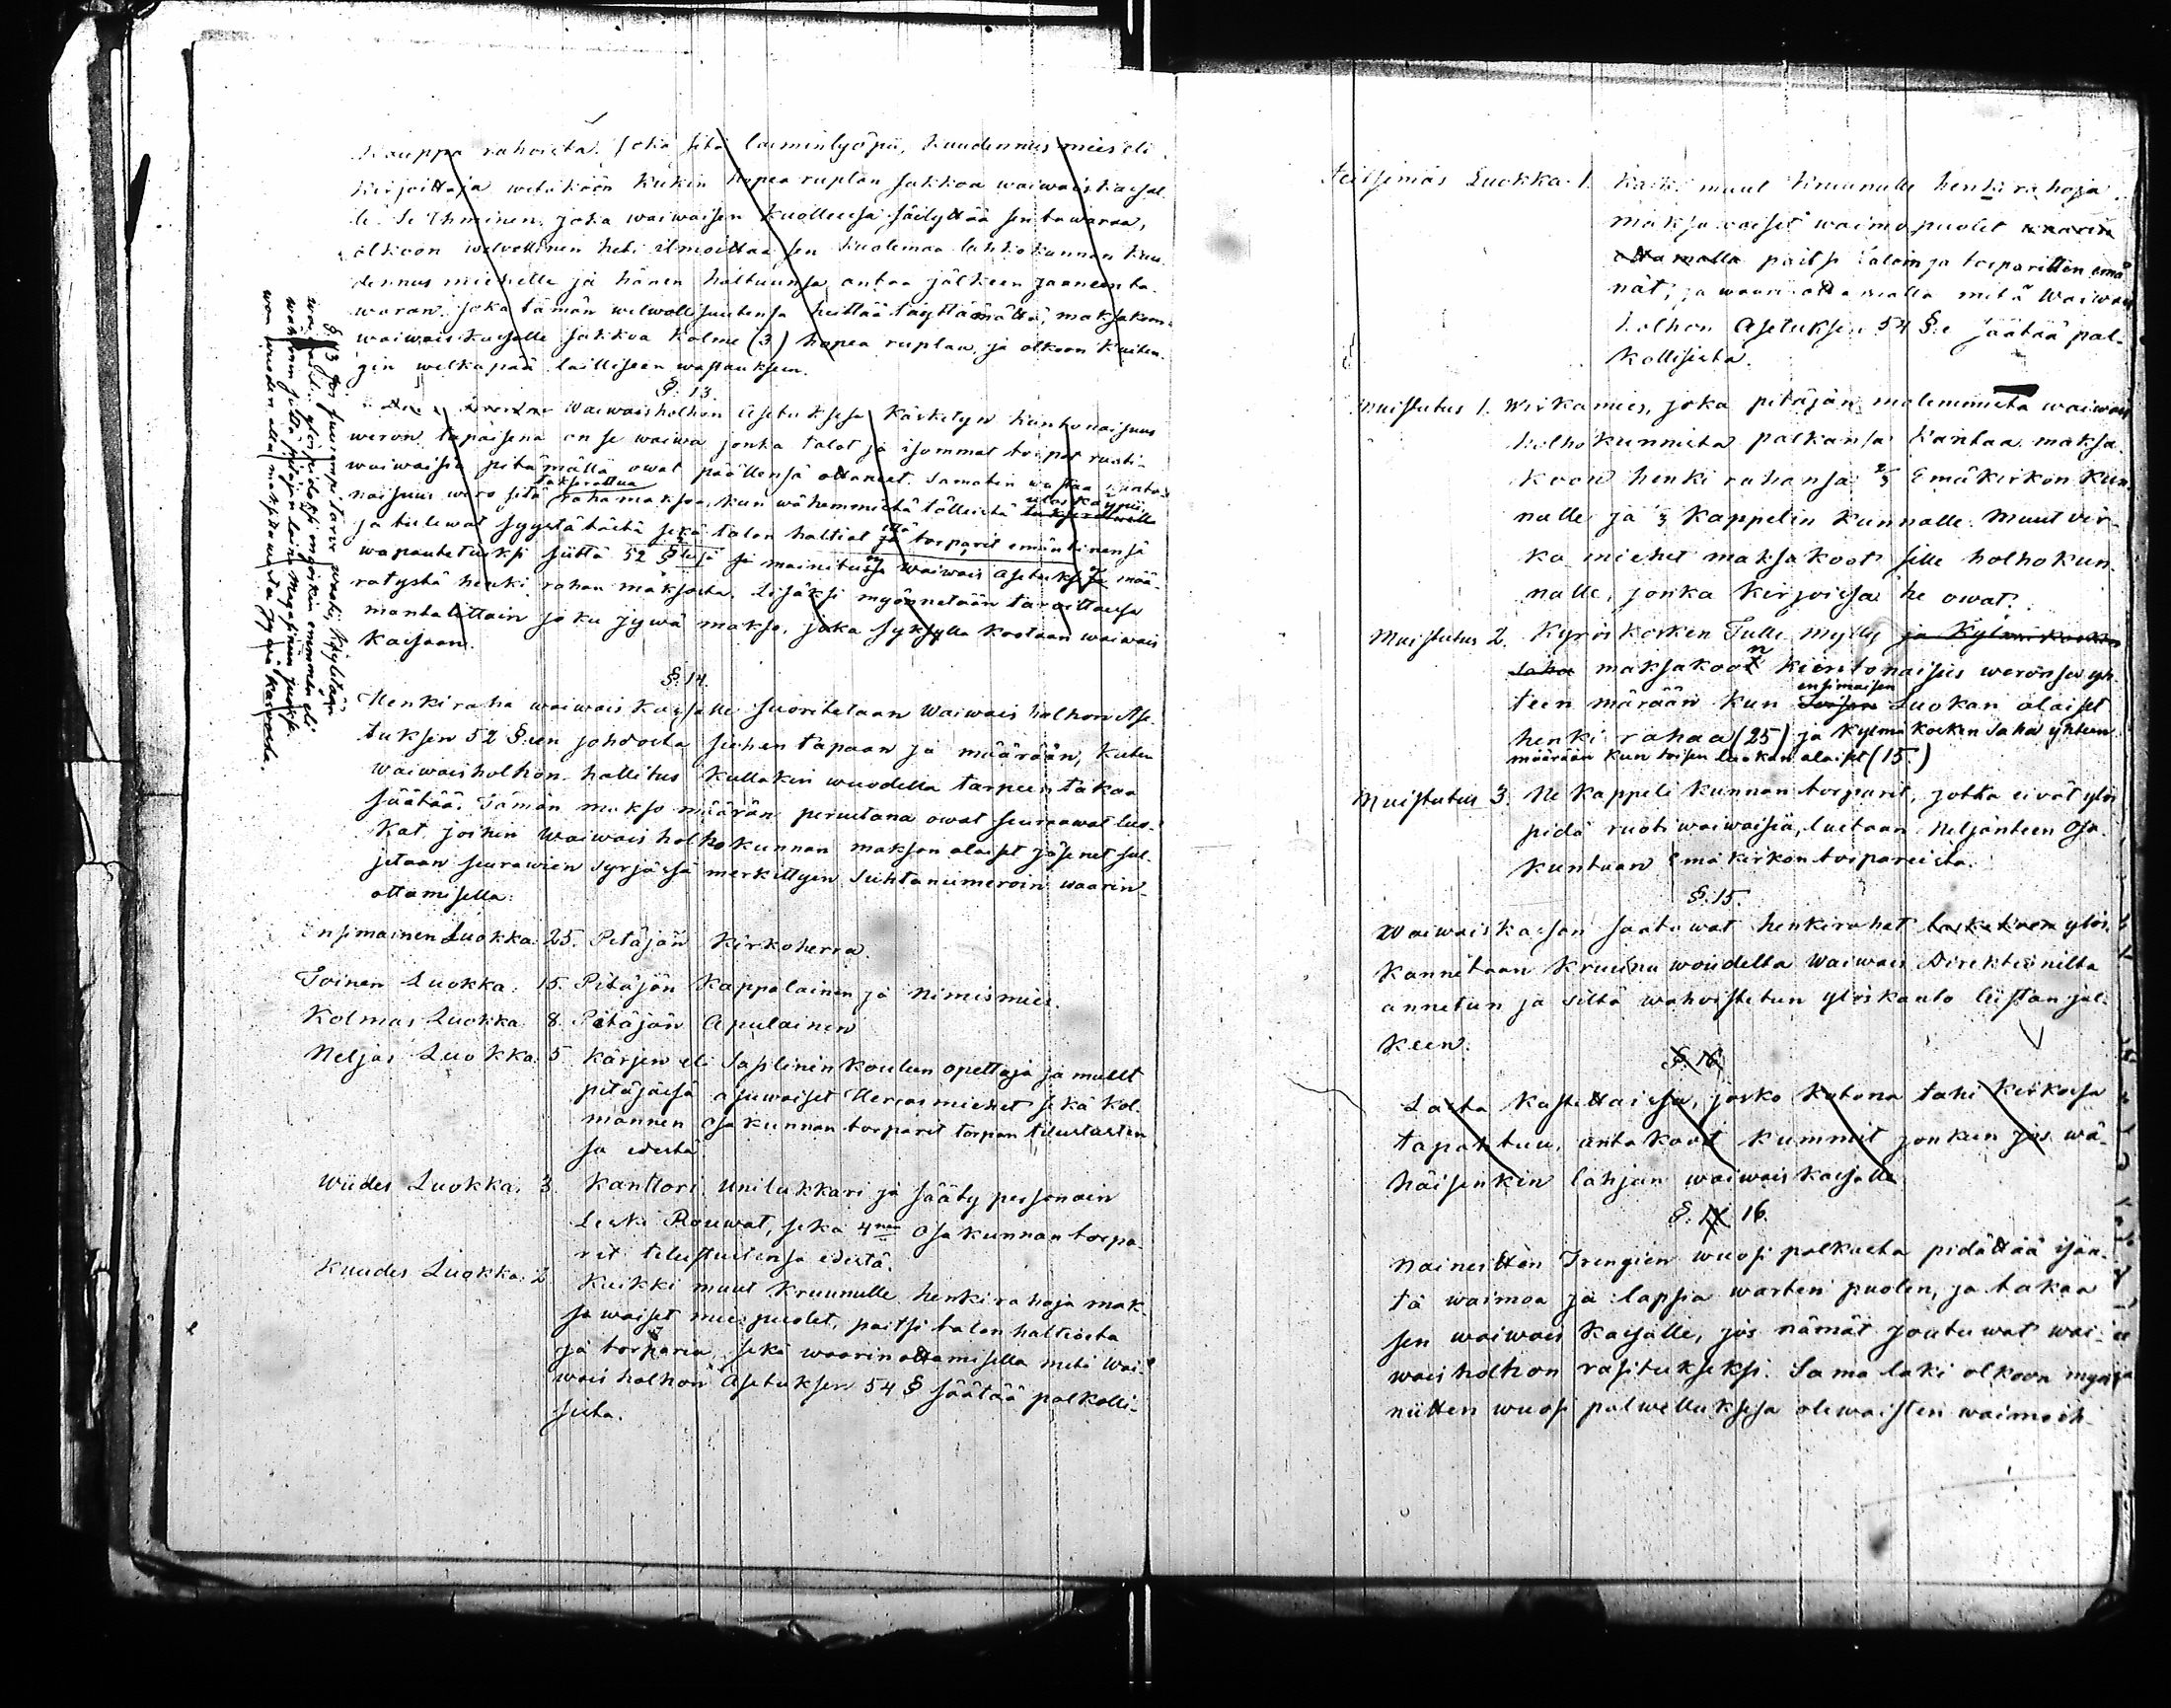 Kauppa rahoista. Joka sitä laiminlyöpii, Kuudennus mies eli
Kirjoittaja wetäköön Kukin hopea ruplan sakkoa waiwaiskassal-
le. Se Ihminen, joka waiwaisen Kuolleesa säilyttää sen tawaraa,
olkoon welvollinen heti ilmoittaa sen Kuolemaa lahkokunnan Kuu-
dennus miehelle ja hänen haltuunsa antaa jälkeen jääneen ta-
waran. Joka tämän welwollisuutensa heittää täyttämättä, maksakoon
waiwaiskassalle sakkoa Kolme (3) hopea ruplaa, ja olkoon Kuiten-
gin welkapää lailliseen wastaukseen.
§. 13.
Waiwaisholhon Asetuksesa Käsketyn Kuntonaisuus
weron tapaisena on se waiwa jonka talot ja isommat torpat ruoti-
waiwaisia pitämällä owat päällensä ottaneet. Samatin wastaa Kunto-
naisuus wero sitä takserattua raha maksoa, kun wähemmistä tölleistä taxserattuilla ulos käypii,
ja tulewat syystä tästä sekä talon haltiat että torparit emäntinensä
wapautetuksi siittä 52 §:sä ja mainitusa waiwais Asetuksesa mää-
rätystä henki rahan maksosta. Lisäksi myönnetään tarvittaesa
manttalittain joku jywä makso, joka syksyllä kootaan waiwais
Kassaan.
§ 13 Jos suurempi tarve waatii, Käytetään
won wuoden alla maksetawasta jywä kaswosta.
§. 14.
Henkiraha waiwais Kassalle suoritetaan Waiwais holhon Ase-
tuksen 52 §:en johdosta siihen tapaan ja määrään, Kuten
Waiwaisholhon hallitus Kullakin wuodella tarpeen takaa
säätää. Tämän makso määrän perustana owat seuraawat luo-
kat, joihin Waiwais holhokunnan makson alaiset jäsenet sul-
jetaan seurawien syrjäsä merkittyen Suhtanumeroin waarin-
ottamisella:
Ensimäinen Luokka: 25. Pitäjän Kirkoherra.
Toinen Luokka: 15. Pitäjän Kappalainen ja Nimismies.
Kolmas Luokka 8. Pitäjän Apulainen
Neljäs Luokka: 5. Kärjen eli Saplinin Koulun opettaja ja muut
pitäjäisä asuwaiset Herrasmiehet sekä Kol-
mannen Osakunnan torparit torpan tilustusten-
sa edestä
Wiides Luokka: 3. Kanttori, Unilukkari ja sääty personain
Leski Rouwat, sekä 4nen Osakunnan torpa-
rit tilustustensa edestä.
Kuudes Luokka: 2 Kaikki muut Kruunulle henkirahoja mak-
sawaiset miespuolet, paitsi talon haltiosta
ja torparia, sekä waarinottamisella mitä Wai-
waisholhon Asetuksen 54 § säätää palkolli-
sista.
Seitsemäs Luokka 1. Kaikki muut Kruunulle henki rahoja
maksawaiset waimopuolet waarin
ottamalla paitsi taloin ja torparitten emän-
nät, ja waarinottamalla mitä Waiwais
holhon Asetuksen 54 §:e säätää pal-
kollisista.
Muistutus 1. Wirkamies, joka pitäjän molemmista waiwais
holhokunnista palkansa kantaa, maksa-
koon henki rahansa 2/3 Emäkirkon Kun-
nalle ja 1/3 Kappelin Kunnalle. Muut vir-
ka miehet maksakoot sille holhokun-
nalle, jonka Kirjoissa he owat.
Muistutus 2. Kyröskosken Tulli Mylly ja Kylmäkosken
Saha maksakoon kuntonaisuus weronsa yh-
teen märään kun toisen ensimaisen Luokan alaiset
henki rahaa (25) ja Kylmäkosken Saha yhteen
määrään kun toisen luokan alaiset (15.)
Muistutus 3. Ne Kappeli Kunnan torparit, jotka eivät ylös
pidä ruotiwaiwaisia, luetaan Neljänteen Osa-
kuntaan Emäkirkon torpareista.
§. 15.
Waiwaiskassan saatawat henkirahat laskekoon ylös
Kannetaan Kruunu woudelta Waiwais Direktionilta
annetun ja siltä wahvistetun ylöskanto listan jäl-
keen.
§. 16
Lasta Kastettaissa, josko Kotona tahi Kirkossa
tapahtuu, antakoot Kummit jonkun jos wä-
häisenkin lahjan waiwaiskassalle
§. 17 16.
Naineitten Trengien wuosi palkasta pidättää isän-
tä waimoa ja lapsia warten puolen, ja takaa
sen waiwais Kassalle, jos nämät joutuwat wai-
waisholhon rasitukseksi. Sama laki olkoon myös
niitten wuosi palwelluksesa olewaisten waimo ih-